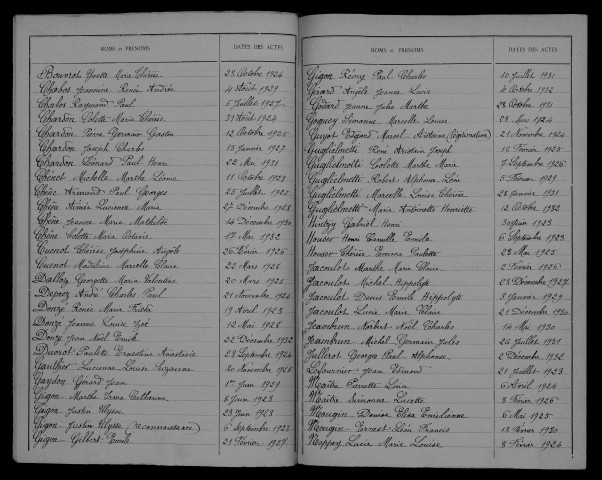 NOMS et PRÉNOMS DATES DES ACTES
Bouvrot Yvette Marie Thérèse 23 Octobre 1924
Chabos Jeannine Renée Andrée 4 Août 1929
Chabos Raymond Paul 5 Juillet 1927
Chardon Colette Marie Thérèse 31 Août 1924
Chardon Pierre Germain Gaston 12 Octobre 1925
Chardon Joseph Charles 15 Janvier 1927
Chardon Léonard Paul Henri 22 Mai 1931
Chenet Michelle Marthe Léonie 11 Octobre 1923
Chêne Armand Paul Georges 25 Juillet 1925
Chêne Aimée Lucienne Marie 27 Décembre 1928
Chêne Jeanne Marie Mathilde 14 Décembre 1930
Chêne Colette Marie Octavie 17 Mai 1932
Cuenot Thérèse Joséphine Angèle 26 Février 1926
Cuenot Madeleine Marcelle Claire 22 Mars 1928
Dalloz Georgette Maria Valentine 20 Mars 1925
Deprez André Charles Paul 21 Novembre 1924
Donzé Renée Marie 19 Avril 1923
Donzé Jeanne Louise Zoé 12 Mai 1928
Donzé Jean Noël Emile 22 Décembre 1932
Ducrot Paulette Ernestine Anastasie 28 Septembre 1924
Gauthier Lucienne Louise Suzanne 20 Novembre 1926
Gaydon Gérard Jean 1er Juin 1929
Gigon Marthe Irma Catherine 5 Juin 1923
Gigon Justin Ulysse 23 Juin 1923
Gigon Justin Ulysse (reconnaissance) 6 Septembre 1923
Gigon Gilbert Emile 21 Février 1927
NOMS et PRÉNOMS DATES DES ACTES
Gigon Rémy Paul Charles 10 Juillet 1931
Girard Angèle Jeanne Lucie 4 Octobre 1932
Godard Jeanne Julie Marthe 28 Octobre 1931
Goguey Simonne Marcelle Louise 28 Mars 1924
Guyot Edgard Marcel Antoine 21 Novembre 1924
Guglielmetti René Aristide Joseph 15 Février 1925
Guglielmetti Colette Marthe Marie 7 Septembre 1926
Guglielmetti Robert Alphonse Léon 5 Février 1929
Guglielmetti Marcelle Louise Thérèse 28 Janvier 1931
Guglielmetti Marie Antoinette Henriette 12 Octobre 1932
Hintzy Gabriel Henri 30 Juin 1923
Houser Henri Camille Emile 6 Septembre 1923
Houser Thérèse Emma Paulette 28 Mai 1925
Jacoulot Marthe Marie Claire 2 Février 1926
Jacoulot Michel Hippolyte 23 Décembre 1927
Jacoulot Denis Emile Hippolyte 3 Janvier 1929
Jacoulot Lucie Marie Claire 21 Décembre 1930
Jeambrun Norbert Noël Charles 14 Mai 1930
Jeambrun Michel Germain Jules 25 Juillet 1931
Jullerot Georges Paul Alphonse 2 Décembre 1932
Lefournier Jean Edmond 21 Juillet 1923
Maître Pierrette Lina 6 Avril 1924
Maître Simonne Lucette 8 Février 1926
Maugin Denise Elisa Emilienne 6 Mai 1925
Mougin Ernest Léon Francis 18 Février 1930
Meppey Lucie Marie Louise 8 Février 1924